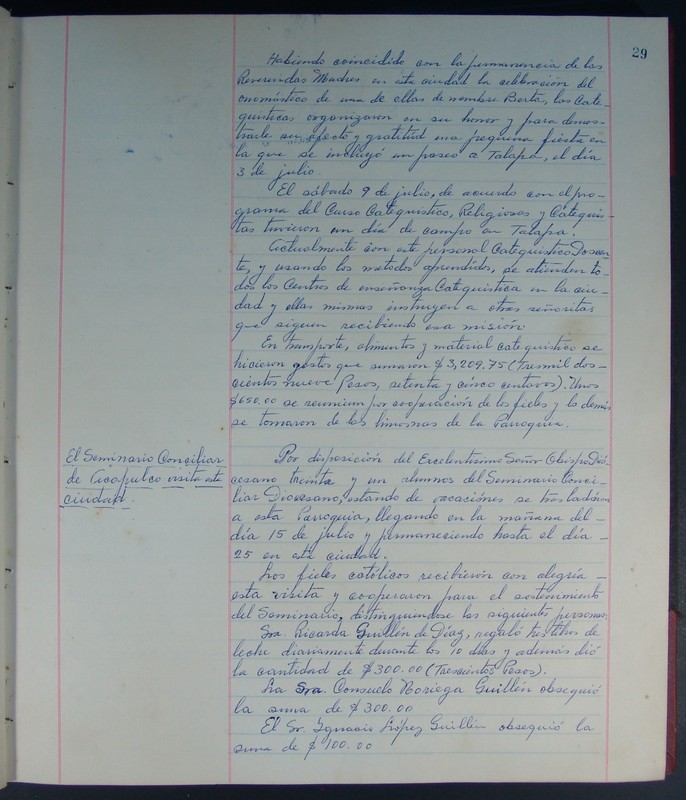 29
Habiendo coincidido con la permanencia de las
Reverendas Madres en esta ciudad la celebración del
onomástico de una de ellas de nombre Berta, las Cate-
quistas organizaron en su honor y para demos-
trarle su afecto y gratitud una pequeña fiesta en
la que se incluyó un paseo a Talapa, el día
3 de julio.
El sábado 9 de julio, de acuerdo con el pro-
grama del Curso Catequístico, Religiosas y Catequis-
tas tuvieron un día de campo en Talapa.
Actualmente con este personal Catequístico Docen-
te, y usando los metodos aprendidos, se atienden to-
dos los Centros de enseñanza Catequistica en la ciu-
dad y ellas mismas instruyen a otras señoritas
que siguen recibiendo esa misión.
En transporte, alimentos y material catequistico se
hicieron gastos que sumaron $3,209.75 (Tres mil dos-
cientos nueve Pesos, setenta y cinco centavos). Unos
$650.00 se reunieron por cooperación de los fieles y lo demás
se tomaron de las limosnas de la Parroquia.
El Seminario Conciliar
de Acapulco visita esta
ciudad.
Por disposición del Excelentísimo Señor Obispo Dio-
cesano treinta y un alumnos del Seminario Conci-
liar Diocesano, estando de vacaciónes se trasladaron
a esta Parroquia, llegando en la mañana del -
día 15 de julio y permaneciendo hasta el día -
25 en esta ciudad.
Los fieles católicos recibieron con alegría -
esta visita y cooperaron para el sostenimiento
del Seminario, distinguiendose las siguientes personas:
Sra. Ricarda Guillén de Díaz, regaló tres litros de
leche diariamente durante los 10 dias y además dió
la cantidad de $300.00 (Trescientos Pesos).
La Sra. Consuelo Noriega Guillén obsequió
la suma de $300.00
El Sr. Ignacio López Guillén obsequió la
suma de $100.00